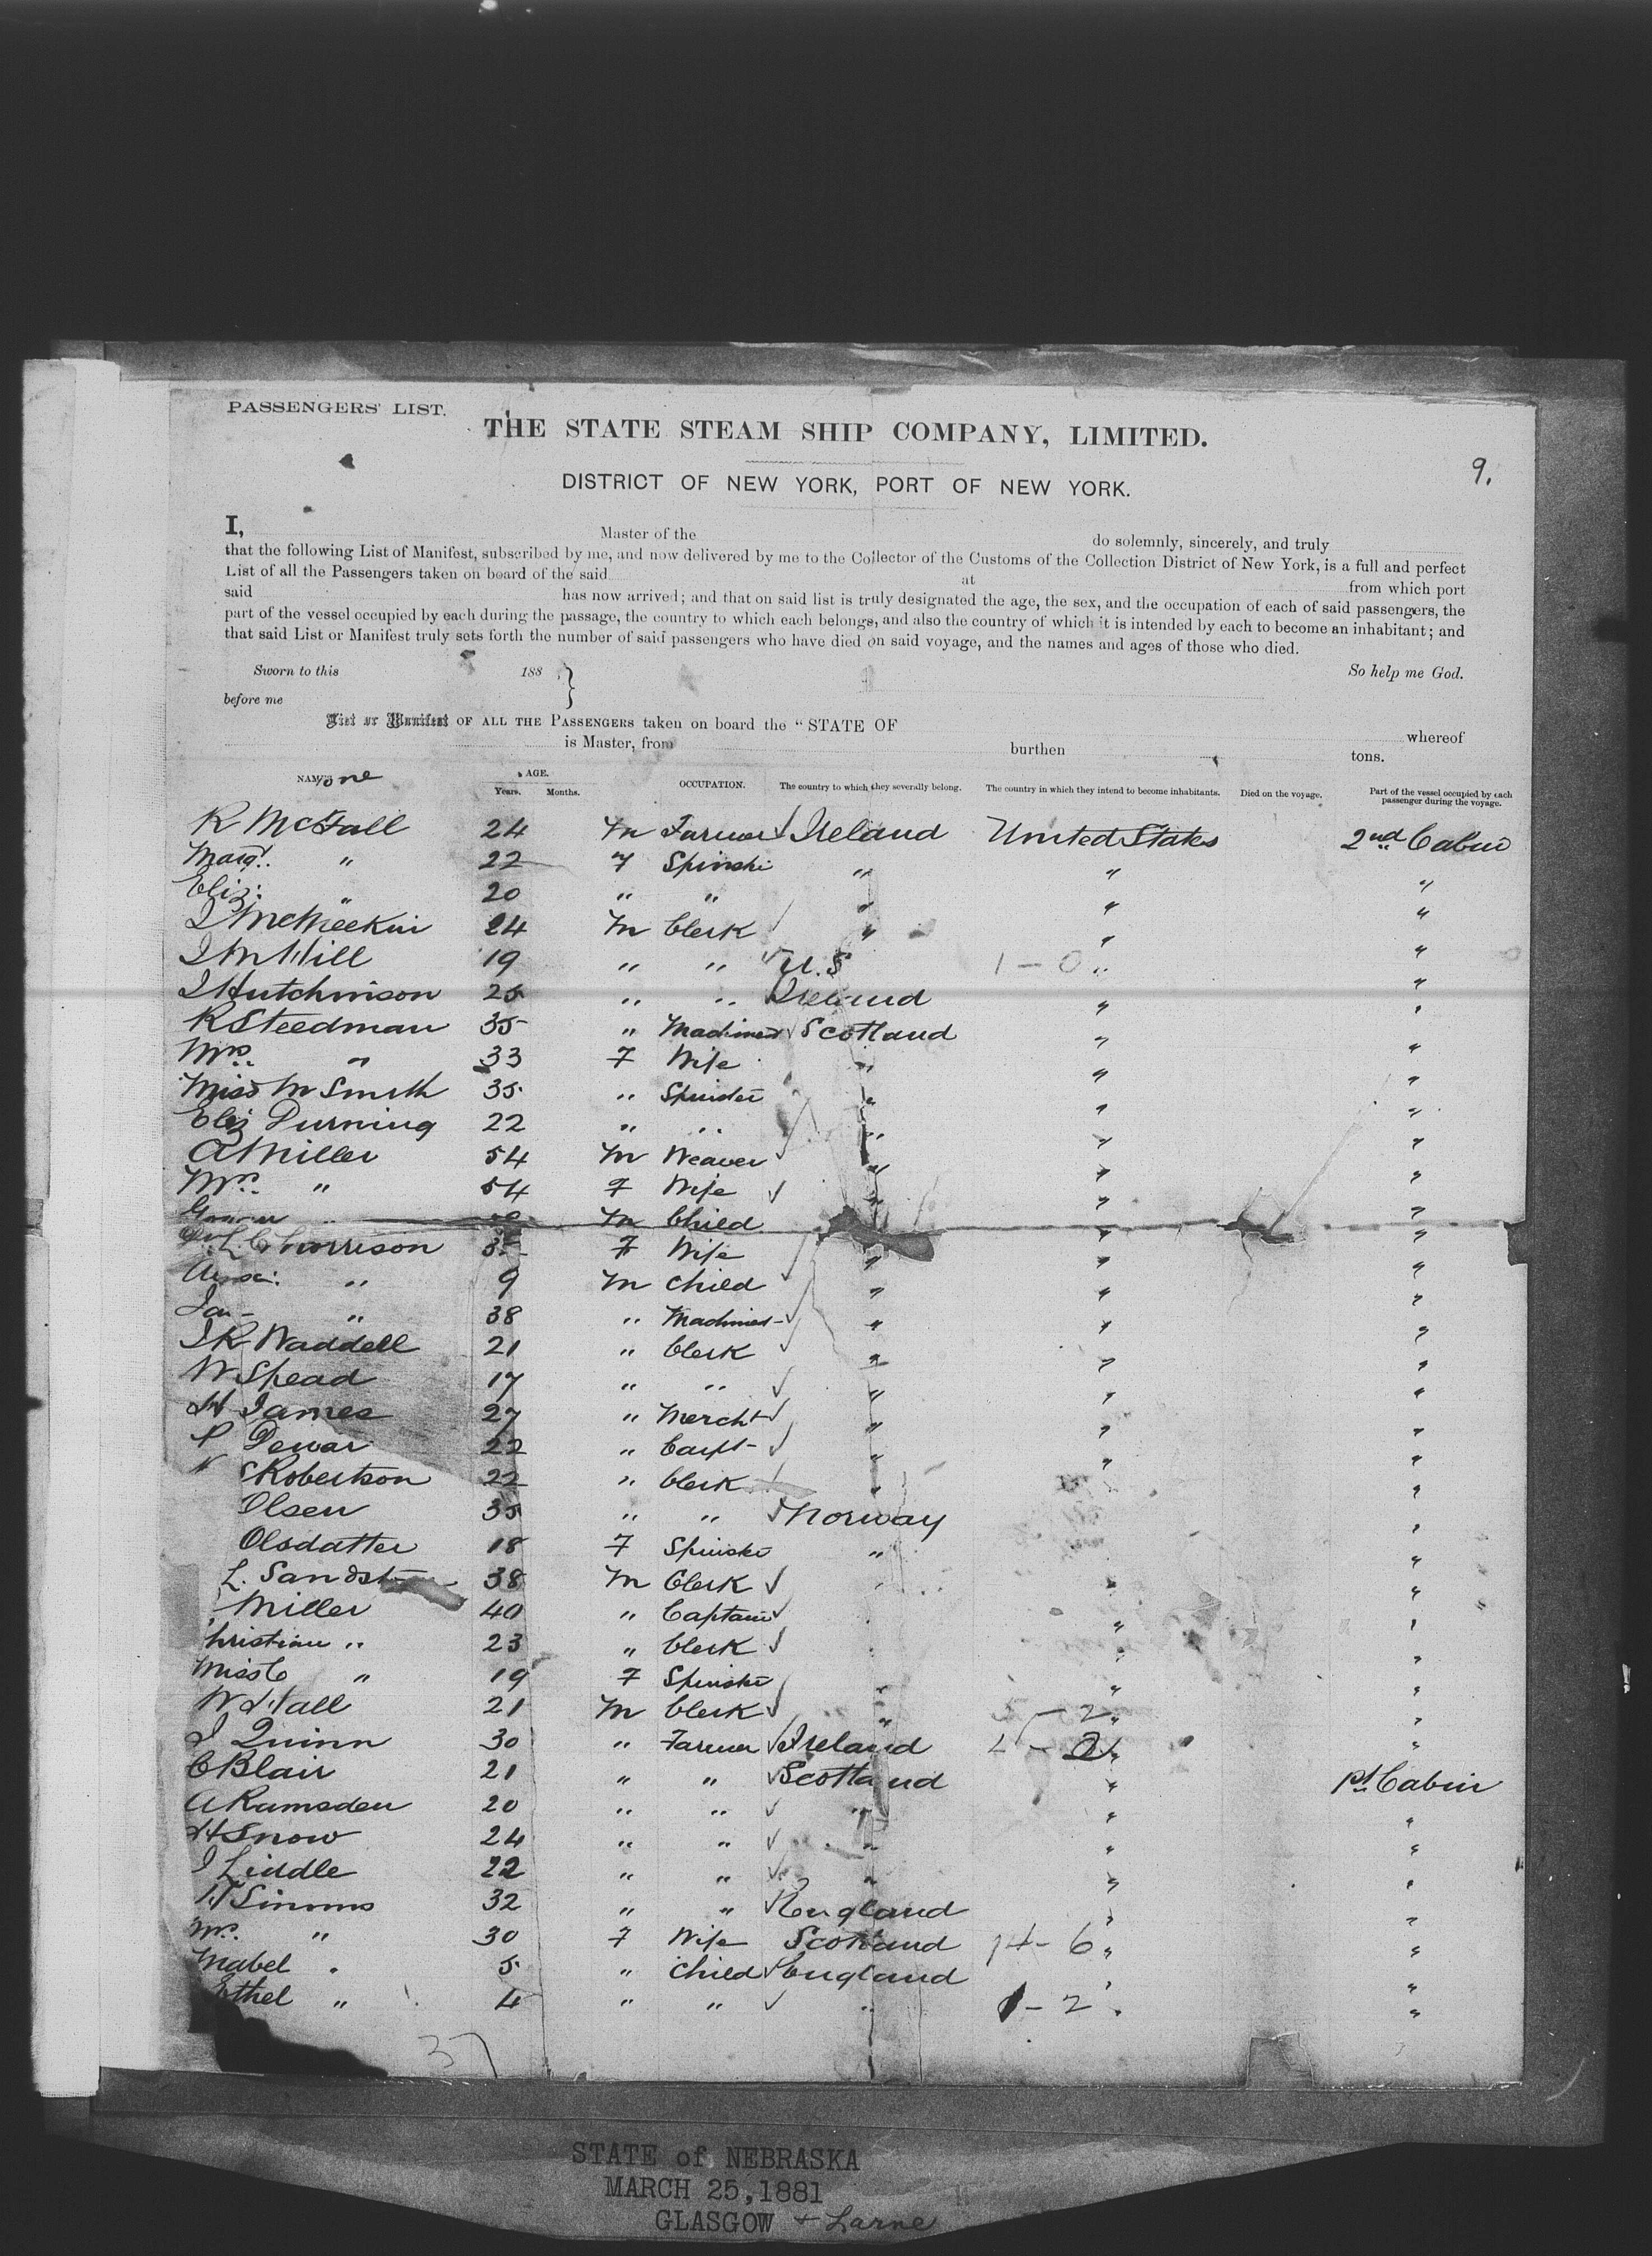 PASSENGERS' LIST.
THE STATE STEAM SHIP COMPANY, LIMITED.
9.
DISTRICT OF NEW YORK, PORT OF NEW YORK.
I, Master of the do solemnly, sincerely, and truly
that the following List of Manifest, subscribed by me, and now delivered by me to the Collector of the Customs of the Collection District of New York, is a full and perfect
List of all the Passengers taken on board of the said at from which port
said has now arrived; and that on said list is truly designated the age, the sex, and the occupation of each of said passengers, the
part of the vessel occupied by each during the passage, the country to which each belongs, and also the country of which it is intended by each to become an inhabitant; and
that said List or Manifest truly sets forth the number of said passengers who have died on said voyage, and the names and ages of those who died.
Sworn to this 188 } So help me God.
before me
List or Manifest OF ALL THE PASSENGERS taken on board the "STATE OF whereof
is Master, from burthen tons.
AGE.
Years. Months. OCCUPATION. The country to which they severally belong. The country in which they intend to become inhabitants. Died on the voyage. Part of the vessel occupied by each passenger during the voyage.
R McFall 24 M Farmer Ireland United States 2nd Cabin
Margt. " 22 F Spinster " " "
Eliz: " 20 " " " " "
J McMeekin 24 M Clerk " " "
J M Hill 19 " " U.S 1-0 " "
J Hutchinson 25 " " Ireland " "
R Steedman 35 " Machinest Scotland " "
Mrs. " 33 F Wife " " "
Miss M Smith 35 " Spinster " " "
Eliz Durning 22 " " " " "
A Miller 54 M Weaver " " "
Mrs. " 54 F Wife " " "
" M Child " " "
Morrison F Wife " " "
" 9 M Child " " "
" 38 " Machinest " " "
J R Waddell 21 " Clerk " " "
W Spead 17 " " " " "
H James 27 " Mercht " " "
P Dewar 22 " Carpt " " "
Robertson 22 " Clerk " "
Olsen 35 " " Norway "
Olsdatter 18 F Spinster " "
L. Sandst 38 M Clerk " "
Miller 40 " Captain " "
hristian " 23 " Clerk " "
Miss C " 19 F Spinster " " "
W Hall 21 M Clerk " 5-2 " "
J Quinn 30 " Farmer Ireland 2 " "
C Blair 21 " " Scotland " 1st Cabin
A Ramsden 20 " " " " "
H Snow 24 " " " " "
J Lindle 22 " " " " "
Simms 32 " " England " "
Mrs. " 30 F Wife Scotland 14-6 " "
Mabel " 5 " Child England " "
Ethel " 4 " " " 1-2 " "
37
STATE of NEBRASKA
MARCH 25,1881
GLASGOW + Larne